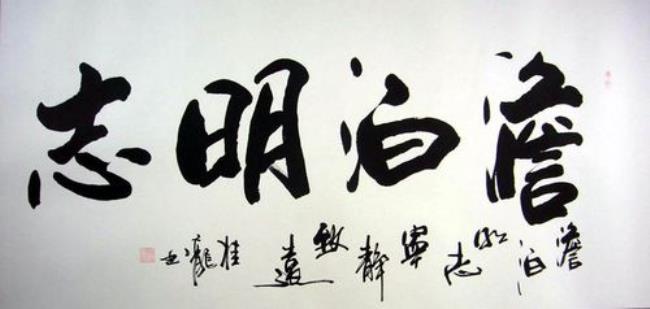 澹泊明志
澹泊明志寧靜致遠
桂龍